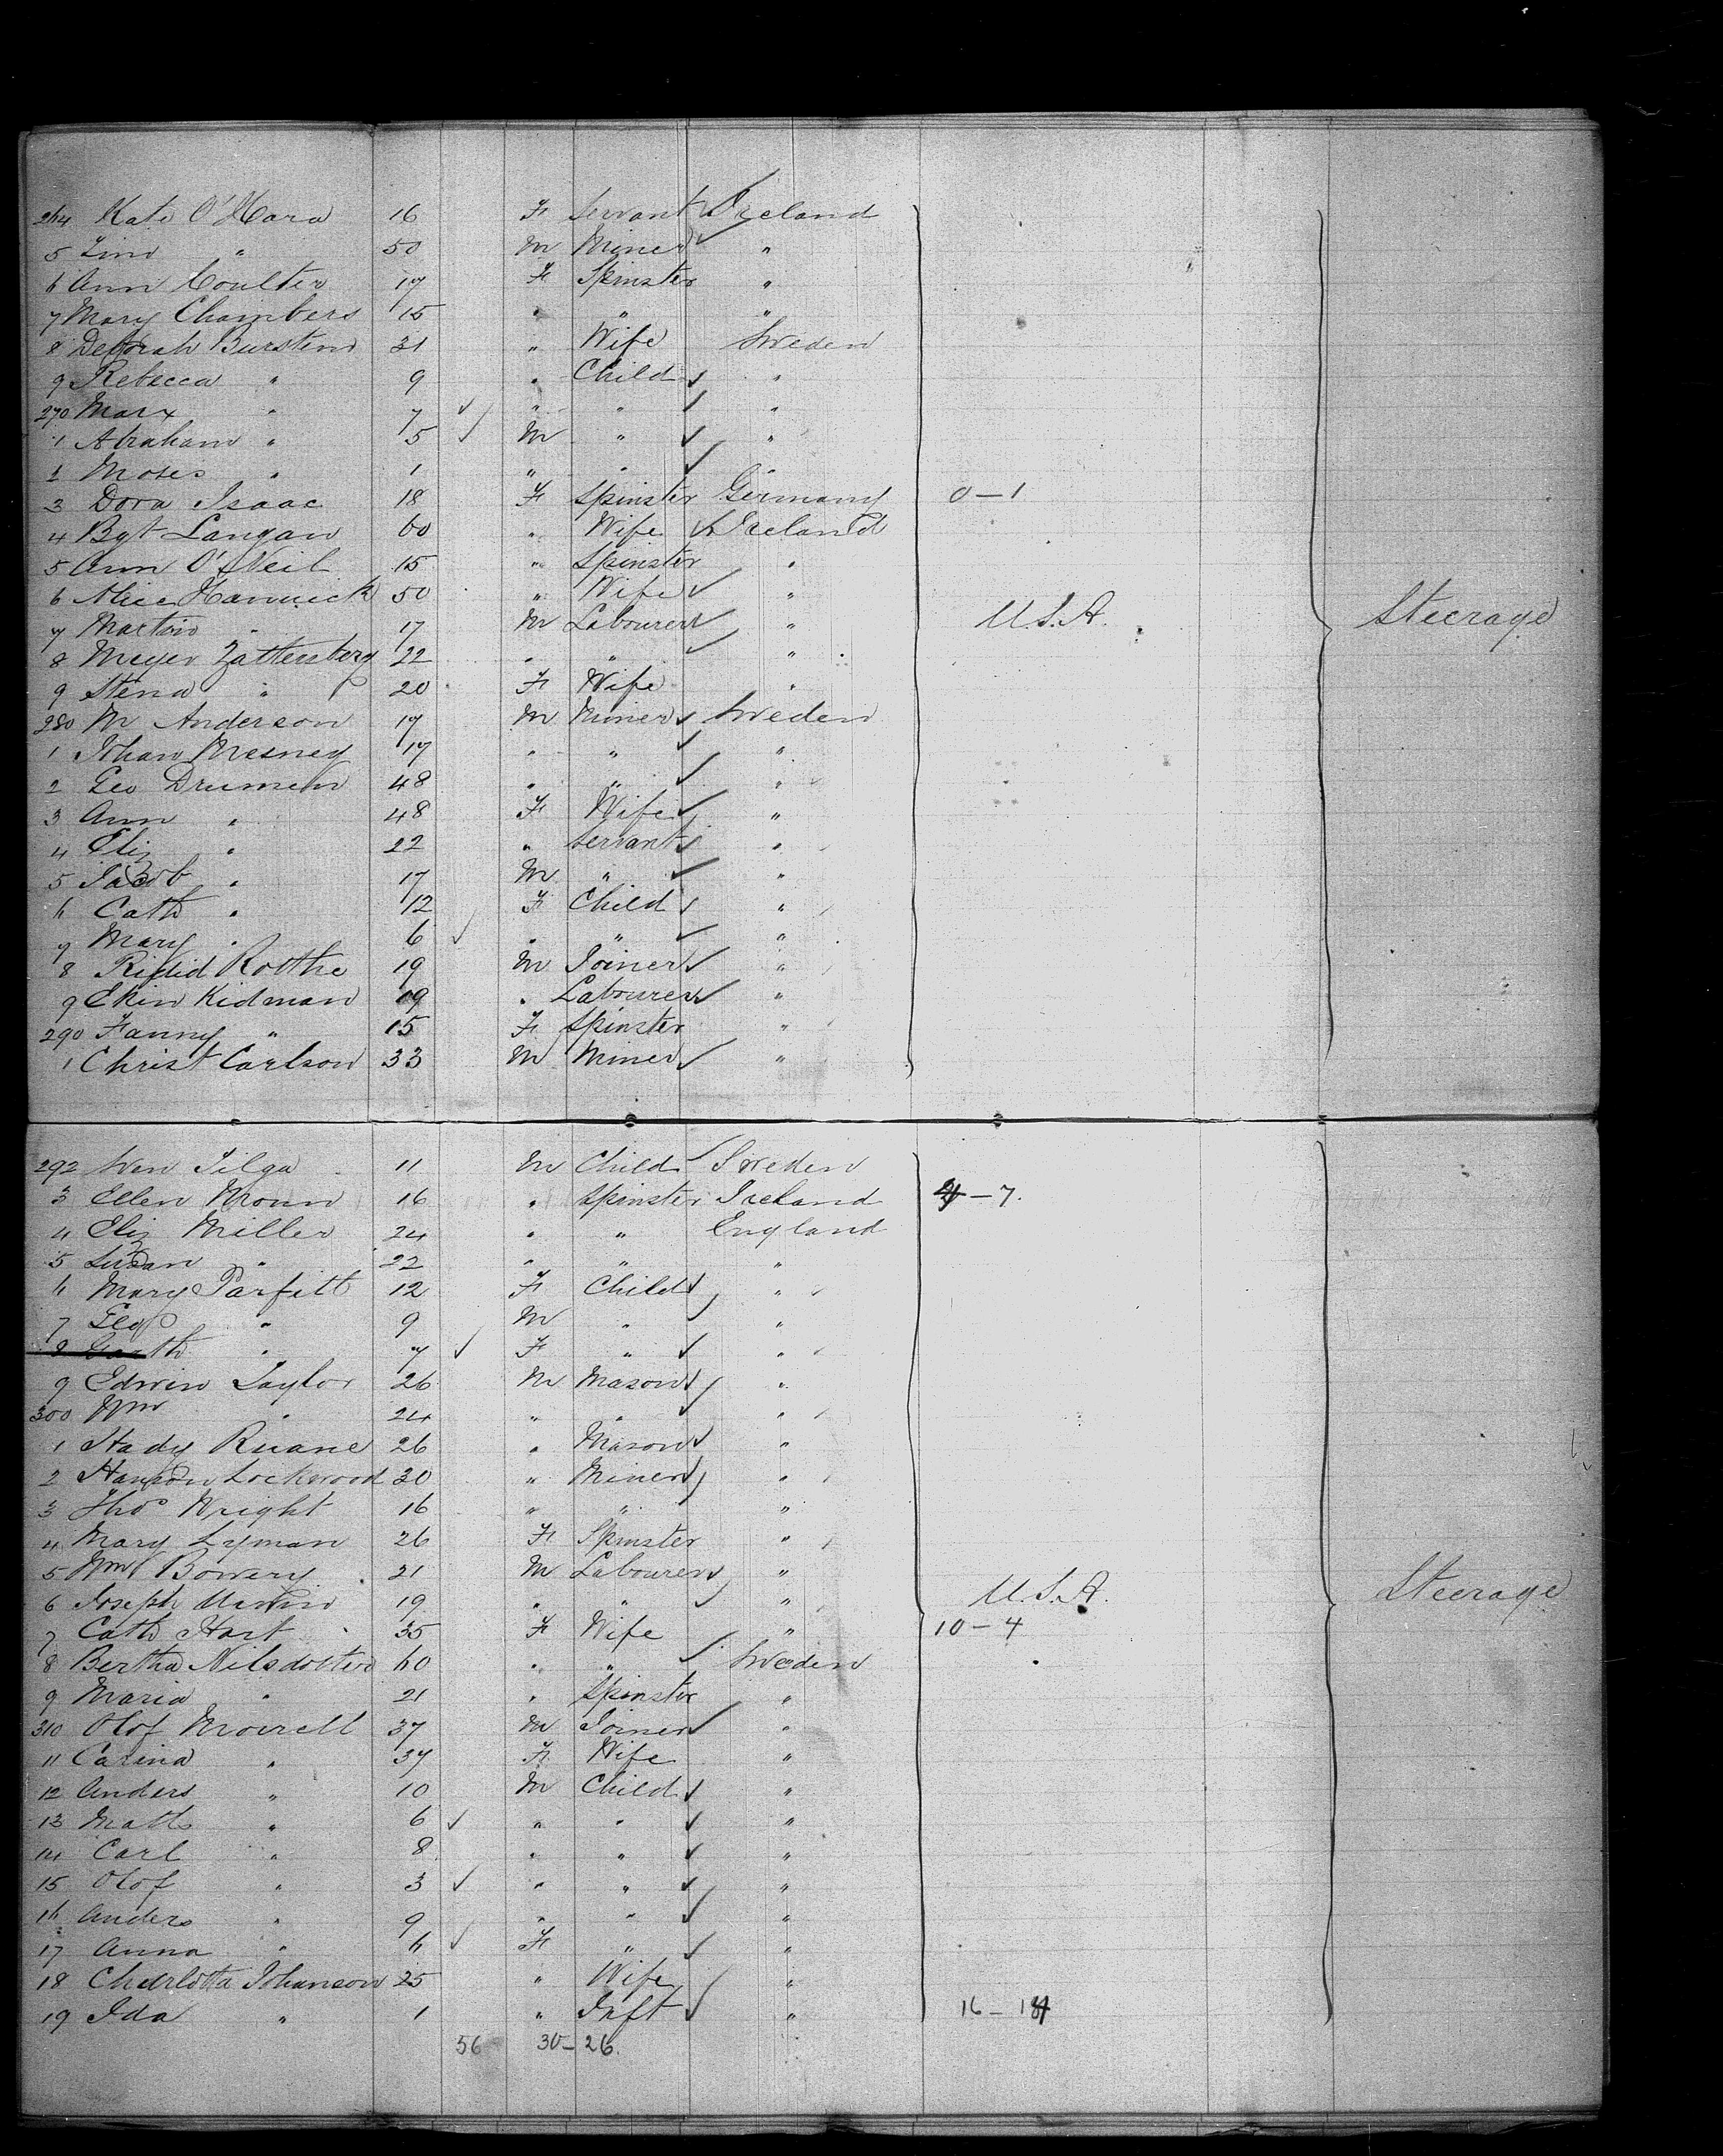 264 Kate O'Hara 16 F Servant Ireland
5 " 50 M Miner "
6 Ann Coulter 17 F Spinster "
7 Mary Chambers 15 " " "
8 Deborah Burstein 31 " Wife Sweden
9 Rebecca " 9 " Child "
270 Marx " 7 " " "
1 Abraham " 5 M " "
1 Moses " 1 " " "
3 Dora Isaac 18 F Spinster Germany 0-1
4 Bgt Langan 60 " Wife Ireland
5 Ann O'Neil 15 " Spinster "
6 Alice 50 " Wife "
7 Martin " 17 M Labourer " U.S.A. Steerage
8 Meyer 22 " " "
9 Stena " 20 F Wife "
280 M Anderson 17 M Miner Sweden
1 Johan Mesney 17 " " "
2 Geo 48 " " "
3 Ann " 48 F Wife "
4 Eliz " 22 " Servant "
5 Jacob " 17 M " "
6 Cath " 12 F Child "
7 Mary " 6 " " "
8 Rothe 19 M Joiner "
9 Ekin Kidman 19 " Labourer "
290 Fanny " 15 F Spinster "
1 Christ Carlson 33 M Miner "
292 Sven 11 M Child Sweden
3 Ellen 16 " Spinster Ireland -7.
4 Eliz Miller 24 " " England
5 Susan " 22 " " "
6 Mary Parfitt 12 F Child "
7 Geo " 9 M " "
8 " 7 F " "
9 Edwin Taylor 26 M Mason "
300 Wm " 24 " " "
1 Ruane 26 " Mason "
2 Lockwood 30 " Miner "
3 Thos Wright 16 " " "
4 Mary Lyman 26 F Spinster "
5 Wm Bowery 21 M Labourer "
6 Joseph Martin 19 " " " U.S.A. Steerage
7 Cath Hart 35 F Wife " 10-4
8 Bertha Nilsdotter 60 " " Sweden
9 Maria " 21 " Spinster "
310 Olof 37 M Joiner "
11 Carina " 37 F Wife "
12 Anders " 10 M Child "
13 Matts " 6 " " "
14 Carl " 8 " " "
15 Olof " 3 " " "
16 Anders " 9 " " "
17 Anna " 6 F " "
18 Charlotta Johanson 25 " Wife "
19 Ida " 1 " Inft " 16-
56 30-26.